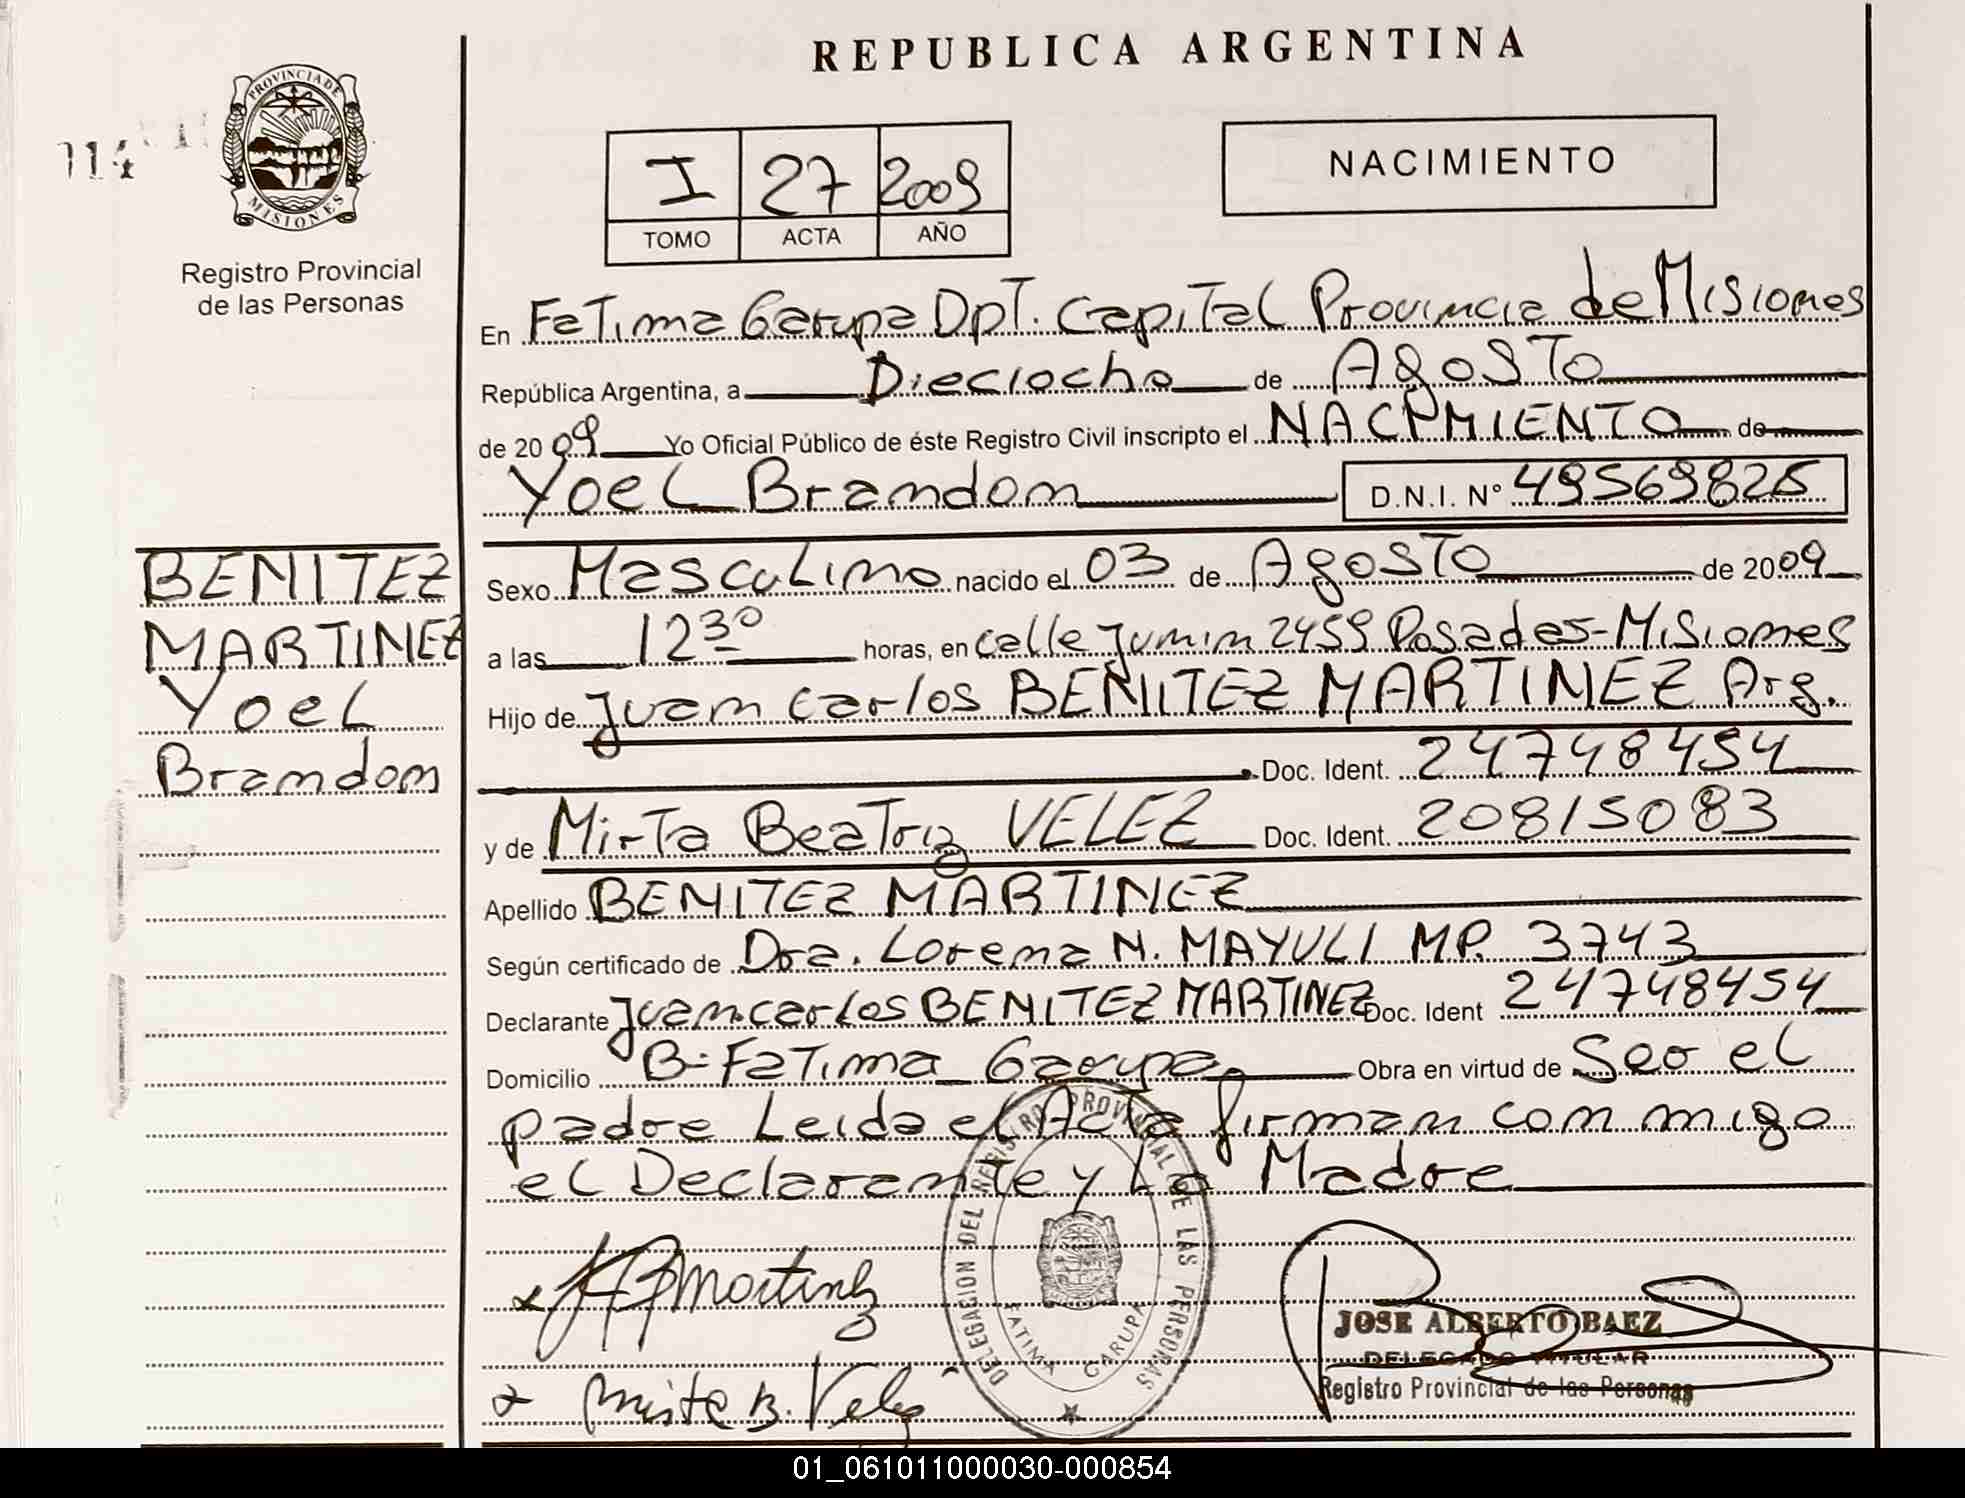 REPUBLICA ARGENTINA
114
PROVINCIA DE
MISIONES
Registro Provincial
de las Personas
I 27 2009
TOMO ACTA AÑO
NACIMIENTO
En Fatima Garupa Dpt. Capital Provincia de Misiones
República Argentina, a Dieciocho de Agosto
de 2009 Yo Oficial Público de éste Registro Civil inscripto el NACPMIENTO de
Yoel Brandon D.N.I. N° 49569826
BENITEZ
MARTINEZ
Yoel
Brandon
Sexo Masculino nacido el 03 de Agosto de 2009
a las 12 30 horas, en calle Junin 2459 Posadas-Misiones
Hijo de Juan Carlos BENITEZ MARTINEZ Arg.
Doc. Ident. 24748454
y de Mirta Beatriz VELEZ Doc. Ident. 20815083
Apellido BENITEZ MARTINEZ
Según certificado de Dra. Lorena N. MAYULI MP. 3743
Declarante Juan Carlos BENITEZ MARTINEZ Doc. Ident 24748454
Domicilio B= Fatima Garupa Obra en virtud de Ser el
padre Leida el Acta firman con migo
el Declarante y La Madre
DELEGACION DEL REGISTRO PROVINCIAL DE LAS PERSONAS
FATIMA GARUPA
Martinez
Mirta B. Velez
JOSE ALBERTO BAEZ
DELEGADO TITULAR
Registro Provincial de las Personas
01_061011000030-000854